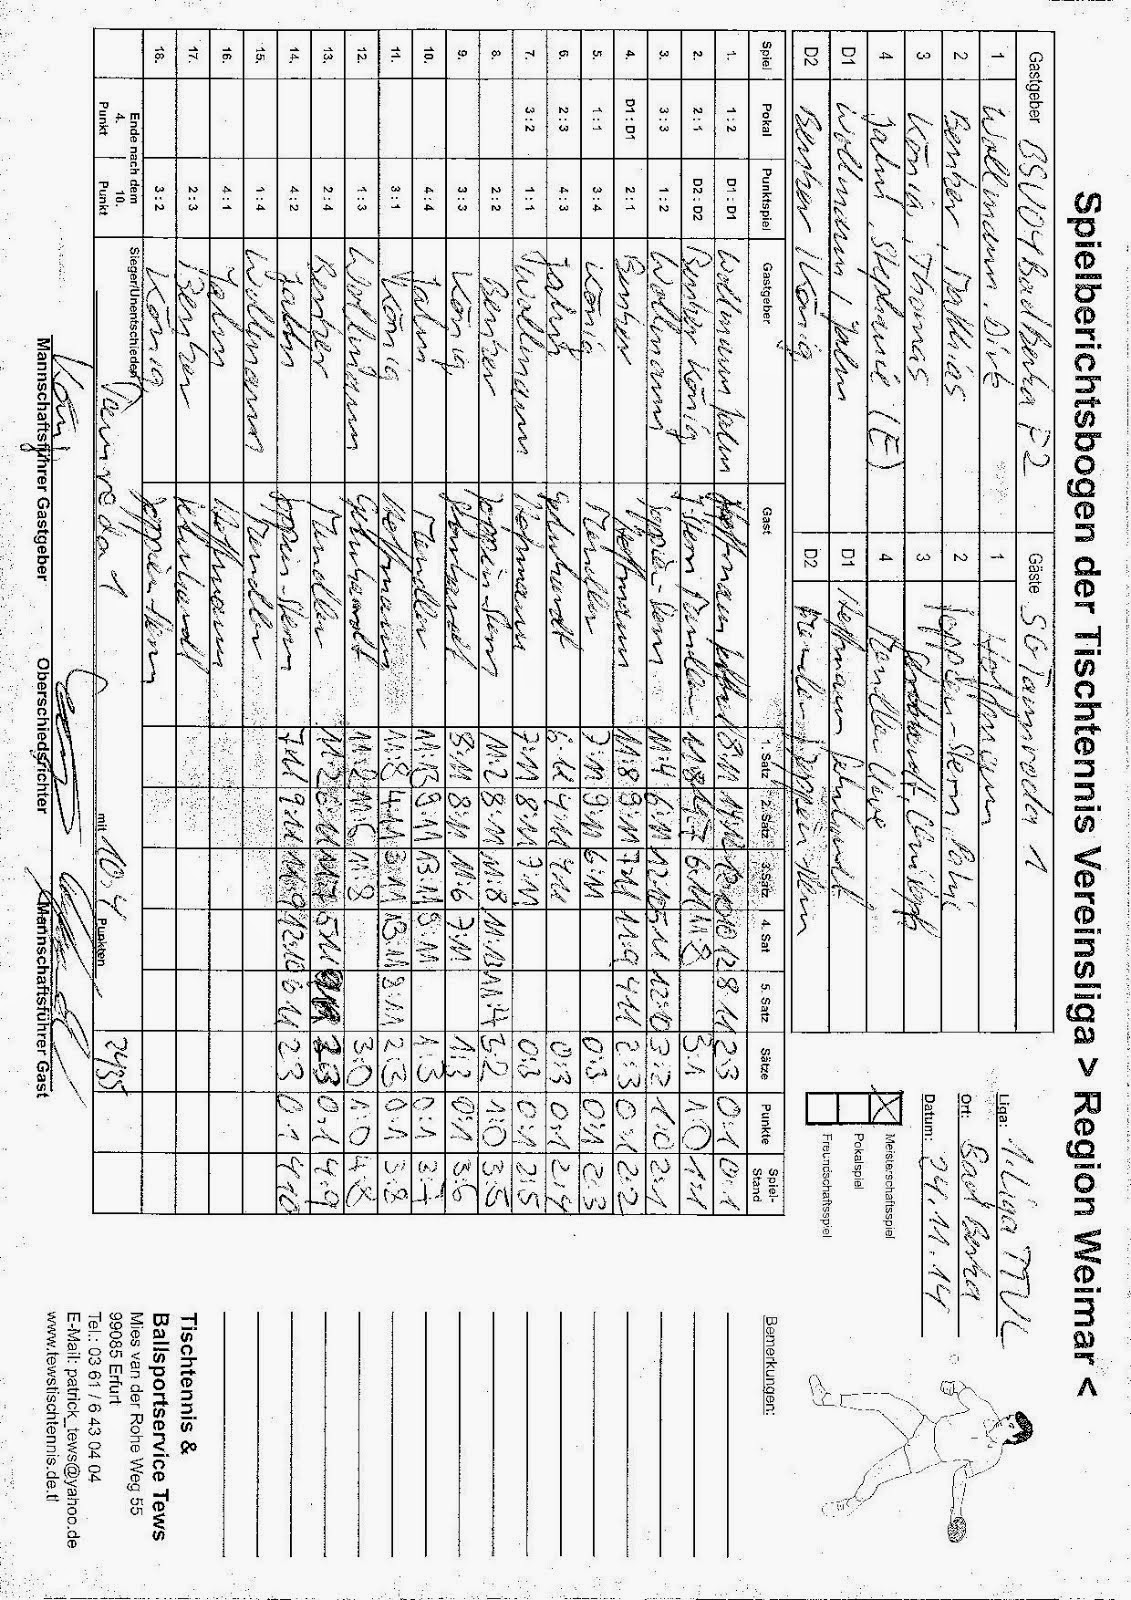 Spielberichtsbogen der Tischtennis Vereinsliga > Region Weimar <
Gastgeber BSV 04 Bad Berka 2 Gäste SG Tannroda 1
1 Wollmann, Dirk 1 Hoffmann
2 Benker, Matthias 2 Joppien-Stern,
3 König, Thomas 3 Christoph
4 Jahn, Stephanie (E) 4 Mendler Uwe
D1 Wollmann / Jahn D1 Hoffmann
D2 Benker / König D2 Mendler Joppien-Stern
Liga: 1. Liga TTVL
Ort: Bad Berka
Datum: 24.11.14
Meisterschaftsspiel
Pokalspiel
Freundschaftsspiel
Spiel Pokal Punktspiel Gastgeber Gast 1. Satz 2. Satz 3. Satz 4. Sat 5. Satz Sätze Punkte Spiel-Stand
1. 1 : 2 D1 : D1 Wollmann Jahn Hoffmann 8:11 2:3 0:1 0:1
2. 2 : 1 D2 : D2 Benker König J.-Stern Mendler 6:11 11:8 3:1 1:0 1:1
3. 3 : 3 1 : 2 Wollmann Joppien-Stern 11:4 6:11 5:11 12:10 3:2 1:0 2:1
4. D1 : D1 2 : 1 Benker Hoffmann 11:8 9:11 7:11 11:9 4:11 2:3 0:1 2:2
5. 1 : 1 3 : 4 König Mendler 7:11 9:11 6:11 0:3 0:1 2:3
6. 2 : 3 4 : 3 Jahn 4:11 0:3 0:1 2:4
7. 3 : 2 1 : 1 Wollmann Hoffmann 7:11 8:11 7:11 0:3 0:1 2:5
8. 2 : 2 Benker Joppien-Stern 11:2 8:11 11:8 11:13 11:7 3:2 1:0 3:5
9. 3 : 3 König 8:11 8:11 11:6 7:11 1:3 0:1 3:6
10. 4 : 4 Jahn Mendler 11:13 9:11 13:11 1:3 0:1 3:7
11. 3 : 1 König Hoffmann 11:8 4:11 3:11 13:11 8:11 2:3 0:1 3:8
12. 1 : 3 Wollmann 11:2 11:6 11:8 3:0 1:0 4:8
13. 2 : 4 Benker Mendler 5:11 2:3 0:1 4:9
14. 4 : 2 Jahn Joppien-Stern 7:11 9:11 12:10 6:11 2:3 0:1 4:10
15. 1 : 4 Wollmann Mendler
16. 4 : 1 Jahn Hoffmann
17. 2 : 3 Benker
18. 3 : 2 König Joppien-Stern
Ende nach dem
4. Punkt 10. Punkt
Sieger/Unentschieden Tannroda 1 mit 10:4 Punkten 24:35
König
Mannschaftsführer Gastgeber Oberschiedsrichter Mannschaftsführer Gast
Bemerkungen:
Tischtennis &
Ballsportservice Tews
Mies van der Rohe Weg 55
99085 Erfurt
Tel.: 03 61 / 6 43 04 04
E-Mail: patrick_tews@yahoo.de
www.tewstischtennis.de.tl